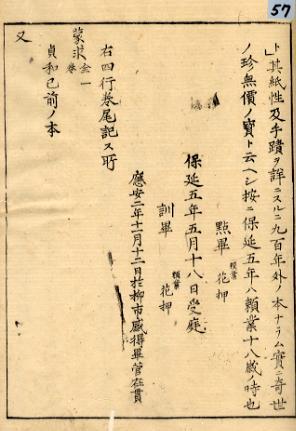 57
ト其紙性及手蹟ヲ詳ニスルニ九百年外ノ本ナラム實ニ奇世
ノ珍無價ノ寶ト云ヘシ按ニ保延五年ハ頼業十八歳ノ時也
點畢 頼業 花押
保延五年五月十八日受庭
訓畢 頼業 花押
應安二年十一月十二日於柳市感得畢管在貫
右四行巻尾記ス所
蒙求 全一巻
貞和已前ノ本
又